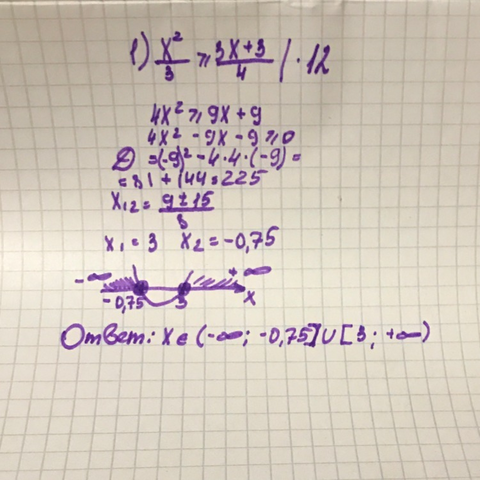 1) x²/3 ≥ 3x+3/4 | · 12
4x² ≥ 9x + 9
4x² - 9x - 9 ≥ 0
D = (-9)² - 4·4·(-9) =
= 81 + 144 = 225
x₁,₂ = 9 ± 15/8
x₁ = 3 x₂ = -0,75
-∞ +∞
-0,75 3 x
Ответ: x ∈ (-∞; -0,75] ∪ [3; +∞)